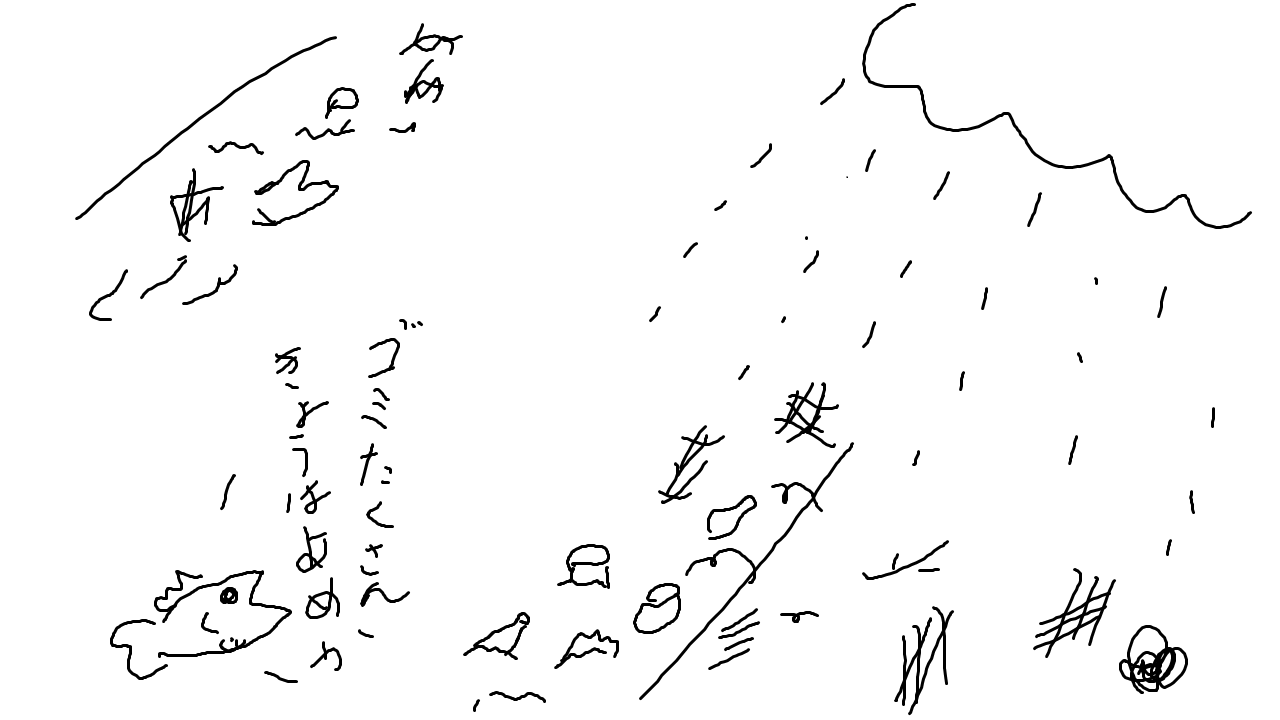 ゴミたくさん
きょうはあめか